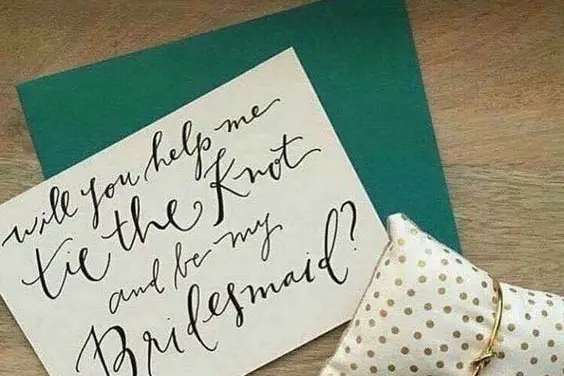 will you help me
tie the Knot
and be my
Bridesmaid?